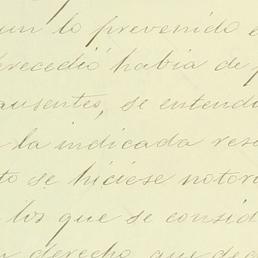 un lo prevenido e
precedió había de p
ausentes, se entend
la indicada reso
to se hiciese notor
los que se consid
derecho, que de